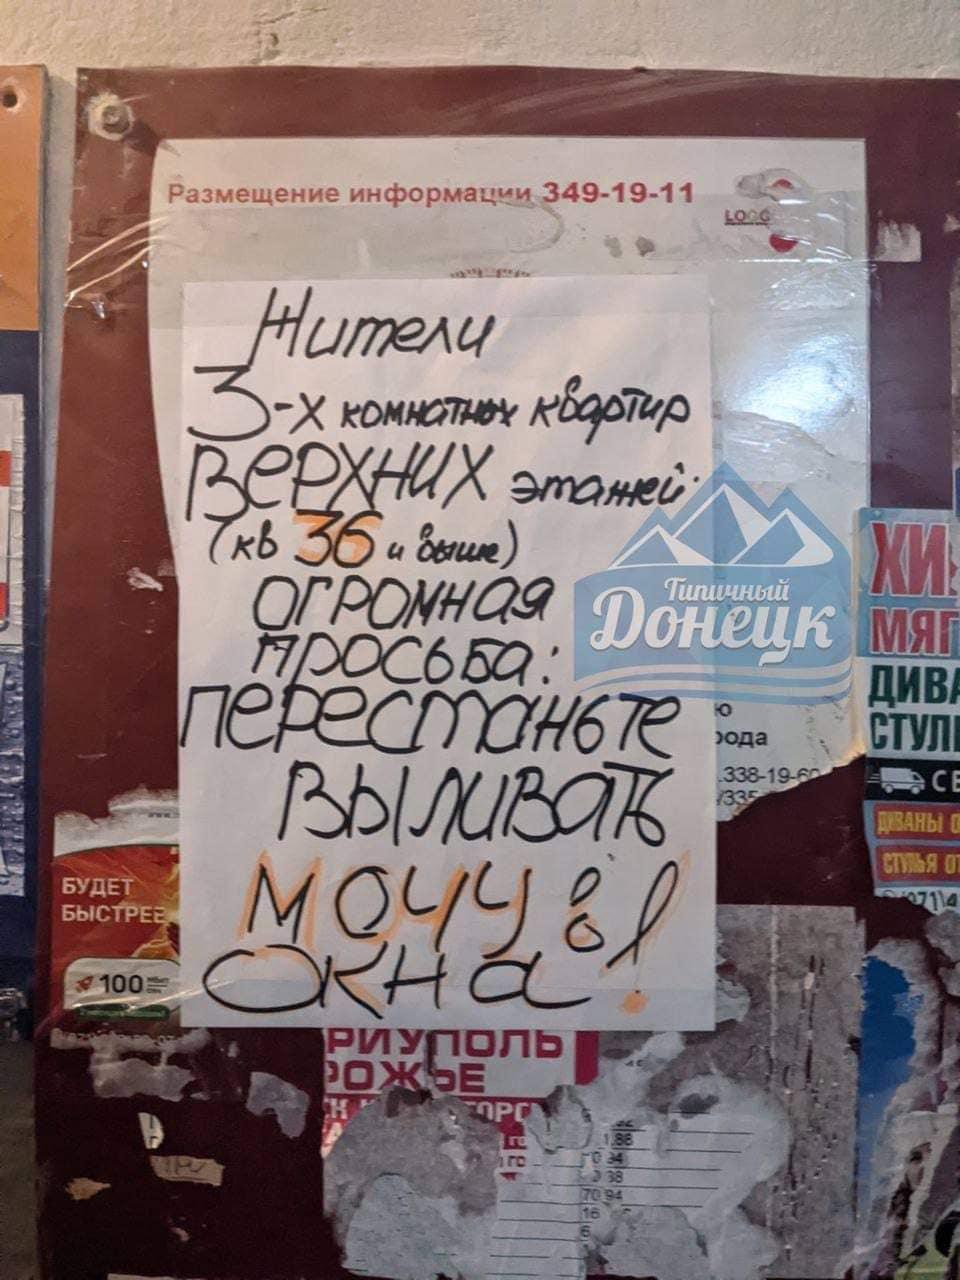 Размещение информации 349-19-11
Жители
3-х комнатных квартир
ВЕРХНИХ этажей
(кв 36 и выше)
ОГРОМНАЯ
ПРОСЬБА:
ПЕРЕСТАНЬТЕ
ВЫЛИВАТЬ
МОЧУ в
ОКНА!
Типичный
Донецк
ХИ
МЯГ
ДИВА
СТУЛ
ДИВАНЫ О
СТУЛЬЯ ОТ
ю
рода
.338-19-60
/335
БУДЕТ
БЫСТРЕЕ
100
РИУПОЛЬ
РОЖЬЕ
70 94
16